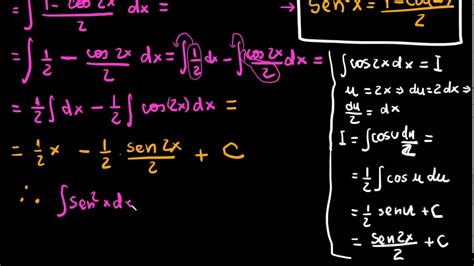 = ∫ (1 - cos2x)/2 dx
= ∫ 1/2 - cos2x/2 dx = ∫ 1/2 dx - ∫ cos2x/2 dx =
= 1/2 ∫ dx - 1/2 ∫ cos(2x) dx =
= 1/2 x - 1/2 · sen2x/2 + C
∴ ∫ sen²x dx
→
sen²x = (1 - cos2x)/2
∫ cos2x dx = I
u = 2x ⇒ du = 2dx ⇒
du/2 = dx
I = ∫ cosu du/2 =
= 1/2 ∫ cosu du
= 1/2 senu + C
= sen2x/2 + C